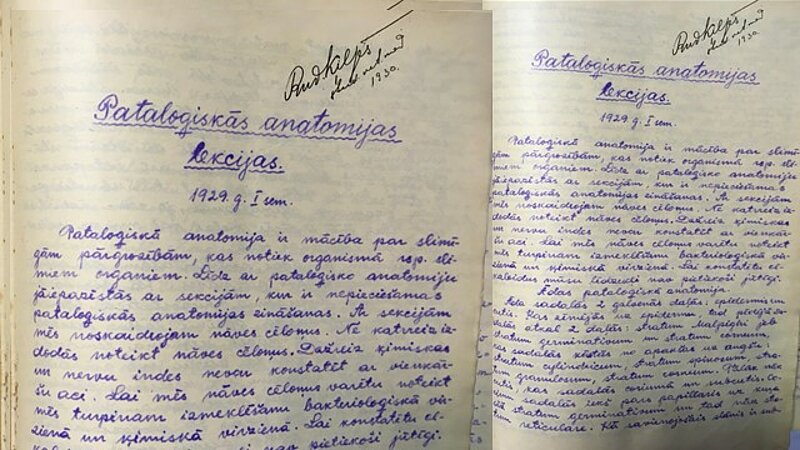 Rud Kalps
stud. med
1930.
Pataloģiskās anatomijas
lekcijas.
1929. g. I sem.
Pataloģiskā anatomija ir mācība par slimī-
gām pārgrozībām, kas notiek organismā resp. slī-
miem organiem. Līdz ar patalogisko anatomiju
jāiepazīstās ar sekcijām, kur ir nepieciešamas
patalogiskās anatomijas zināšanas. Ar sekcijām
mēs noskaidrojam nāves cēloņus. Ne katrreiz iz-
dodās noteikt nāves cēloņus. Dažreiz ķīmiskas
un nervu indes nevar konstatēt ar vienkār-
šu aci. Lai mēs nāves cēloņus varētu noteikt
mēs turpinam izmeklēšanu bakterioloģiskā vir-
zienā un ķīmiskā virzienā. Lai konstatētu al-
nav pietiekoši jūtīgi.
Rud Kalps
stud. med
1930.
Pataloģiskās anatomijas
lekcijas.
1929. g. I sem.
Pataloģiskā anatomija ir mācība par slimī-
gām pārgrozībām, kas notiek organismā resp. slī-
miem organiem. Līdz ar patalogisko anatomiju
jāiepazīstās ar sekcijām, kur ir nepieciešamas
patalogiskās anatomijas zināšanas. Ar sekcijām
mēs noskaidrojam nāves cēloņus. Ne katrreiz iz-
dodās noteikt nāves cēloņus. Dažreiz ķīmiskas
un nervu indes nevar konstatēt ar vienkār-
šu aci. Lai mēs nāves cēloņus varētu noteikt
mēs turpinam izmeklēšanu bakterioloģiskā vir-
zienā un ķīmiskā virzienā. Lai konstatētu al-
kaloidus mūsu līdzekļi nav pietiekoši jūtīgi.
Ādas pataloģiskā anatomija.
Āda sadalās 2 galvenās daļās: epidermis un
cutis. Kas zīmējās uz epidermu, tad pēdējā sa-
dalās atkal 2 daļās: stratum Malpighi jeb
stratum germinativum un stratum corneum,
kas sadalās kārtās no apakšas uz augšu:
stratum cylindricum, stratum spinosum, stra-
tum granulosum, stratum corneum. Tālāk nāk
cutis, kas sadalās coriumā un subcutis. Co-
rium sadalās iekš pars papillaris
stratum germinativum un tad nāk stra-
tum reticulare. Kā savienojošais slānis ir sub-